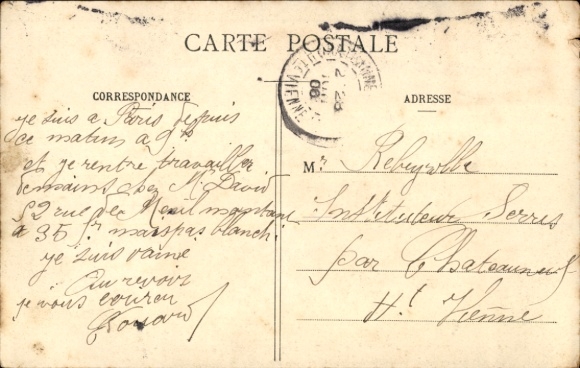 CARTE POSTALE
CORRESPONDANCE
je suis a Paris depuis
ce matin a 9 hs
et je rentre travailler
demains che Mr David
52 rue de Menil montant
a 35 fr mais pas blanchi
je suis vaine
Au revoir
je vous
ADRESSE
Mr Rebeyrolle
Instituteur Serres
par Chateauneuf
Ht Vienne